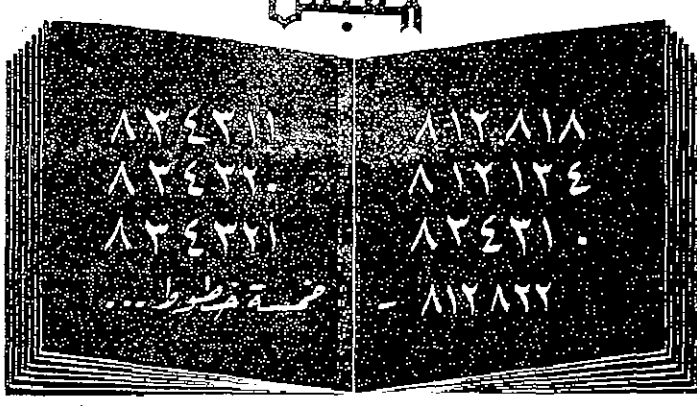 ٨١٢٠٨١٨
٨١٢١٣٤
٨٣٤٣١٠
٨١٢٨٢٢ -
٨٣٤٣١١
٨٣٤٣٢٠
٨٣٤٣٢١
خمسة خطوط...